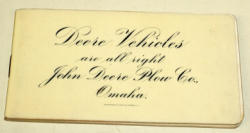 Deere Vehicles
are all right
John Deere Plow Co.,
Omaha.